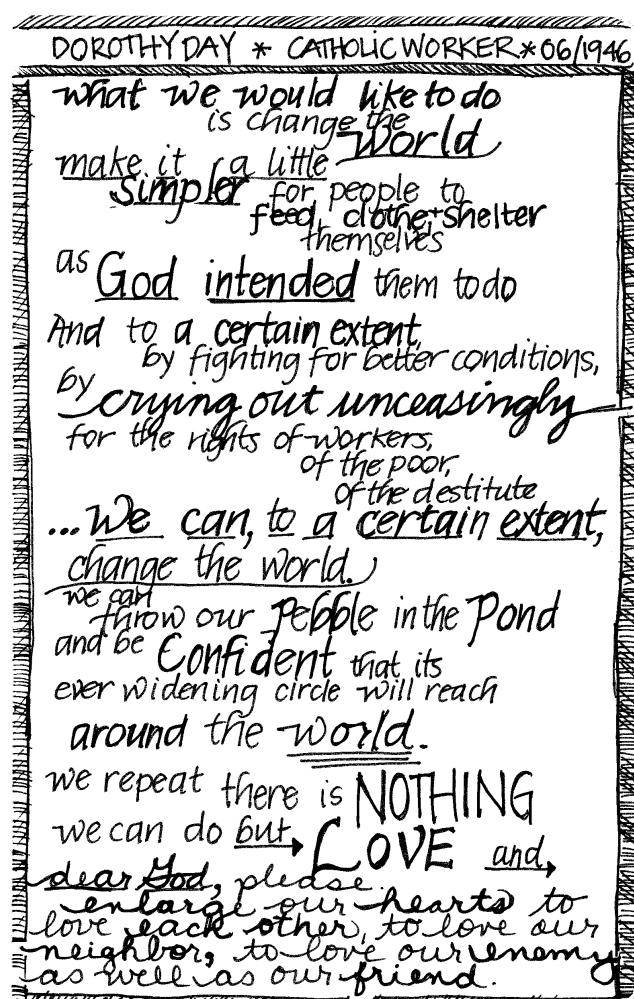 DOROTHY DAY * CATHOLIC WORKER * 06/1946
what we would like to do
is change the
world
make it a little
simpler for people to
feed, clothe, + shelter
themselves
as God intended them to do
And to a certain extent,
by fighting for better conditions,
by crying out unceasingly
for the rights of workers,
of the poor,
of the destitute
...we can, to a certain extent,
change the world.
we can
throw our pebble in the pond
and be confident that its
ever widening circle will reach
around the world.
we repeat there is NOTHING
we can do but LOVE and
dear God, please
enlarge our hearts to
love each other, to love our
neighbor, to love our enemy
as well as our friend.